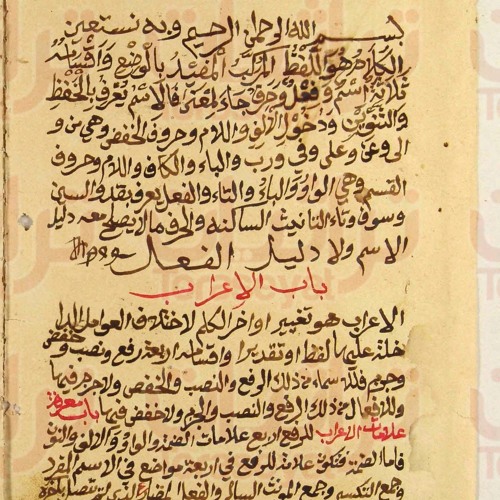 بسم الله الرحمن الرحيم وبه نستعين
الكلام هو اللفظ المركب المفيد بالوضع واقسامه
ثلاثة اسم وفعل وحرف جاء لمعنى فالاسم يعرف بالخفظ
والتنوين ودخول الالف واللام وحروف الخفض وهي من و
الى وعن وعلى وفي ورب والباء والكاف واللام وحروف
القسم وهي الواو والباء والتاء والفعل يعرف بقد والسين
وسوف وتاء التانيث الساكنه والحرف ما لا يصلح معه دليل
الاسم ولا دليل الفعل
باب الاعراب
الاعراب هو تغيير اواخر الكلم لاختلاف العوامل الدا
خلة عليها لفظا او تقديرا واقسامه اربعة رفع ونصب و خفض
وجزم فللاسماء من ذلك الرفع والنصب والخفض ولا جزم فيها
وللافعال من ذلك الرفع والنصب والجزم ولا خفض فيها باب معرفة
علامات الاعراب للرفع اربع علامات الضمة والواو والالف والنون
فاما الضمة فتكون علامة للرفع في اربعة مواضع في الاسم المفرد
وجمع التكسير وجمع المونث السالم والفعل المضارع الذي لم يتصل باخره